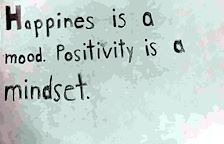 Happines is a
mood. Positivity is a
mindset.